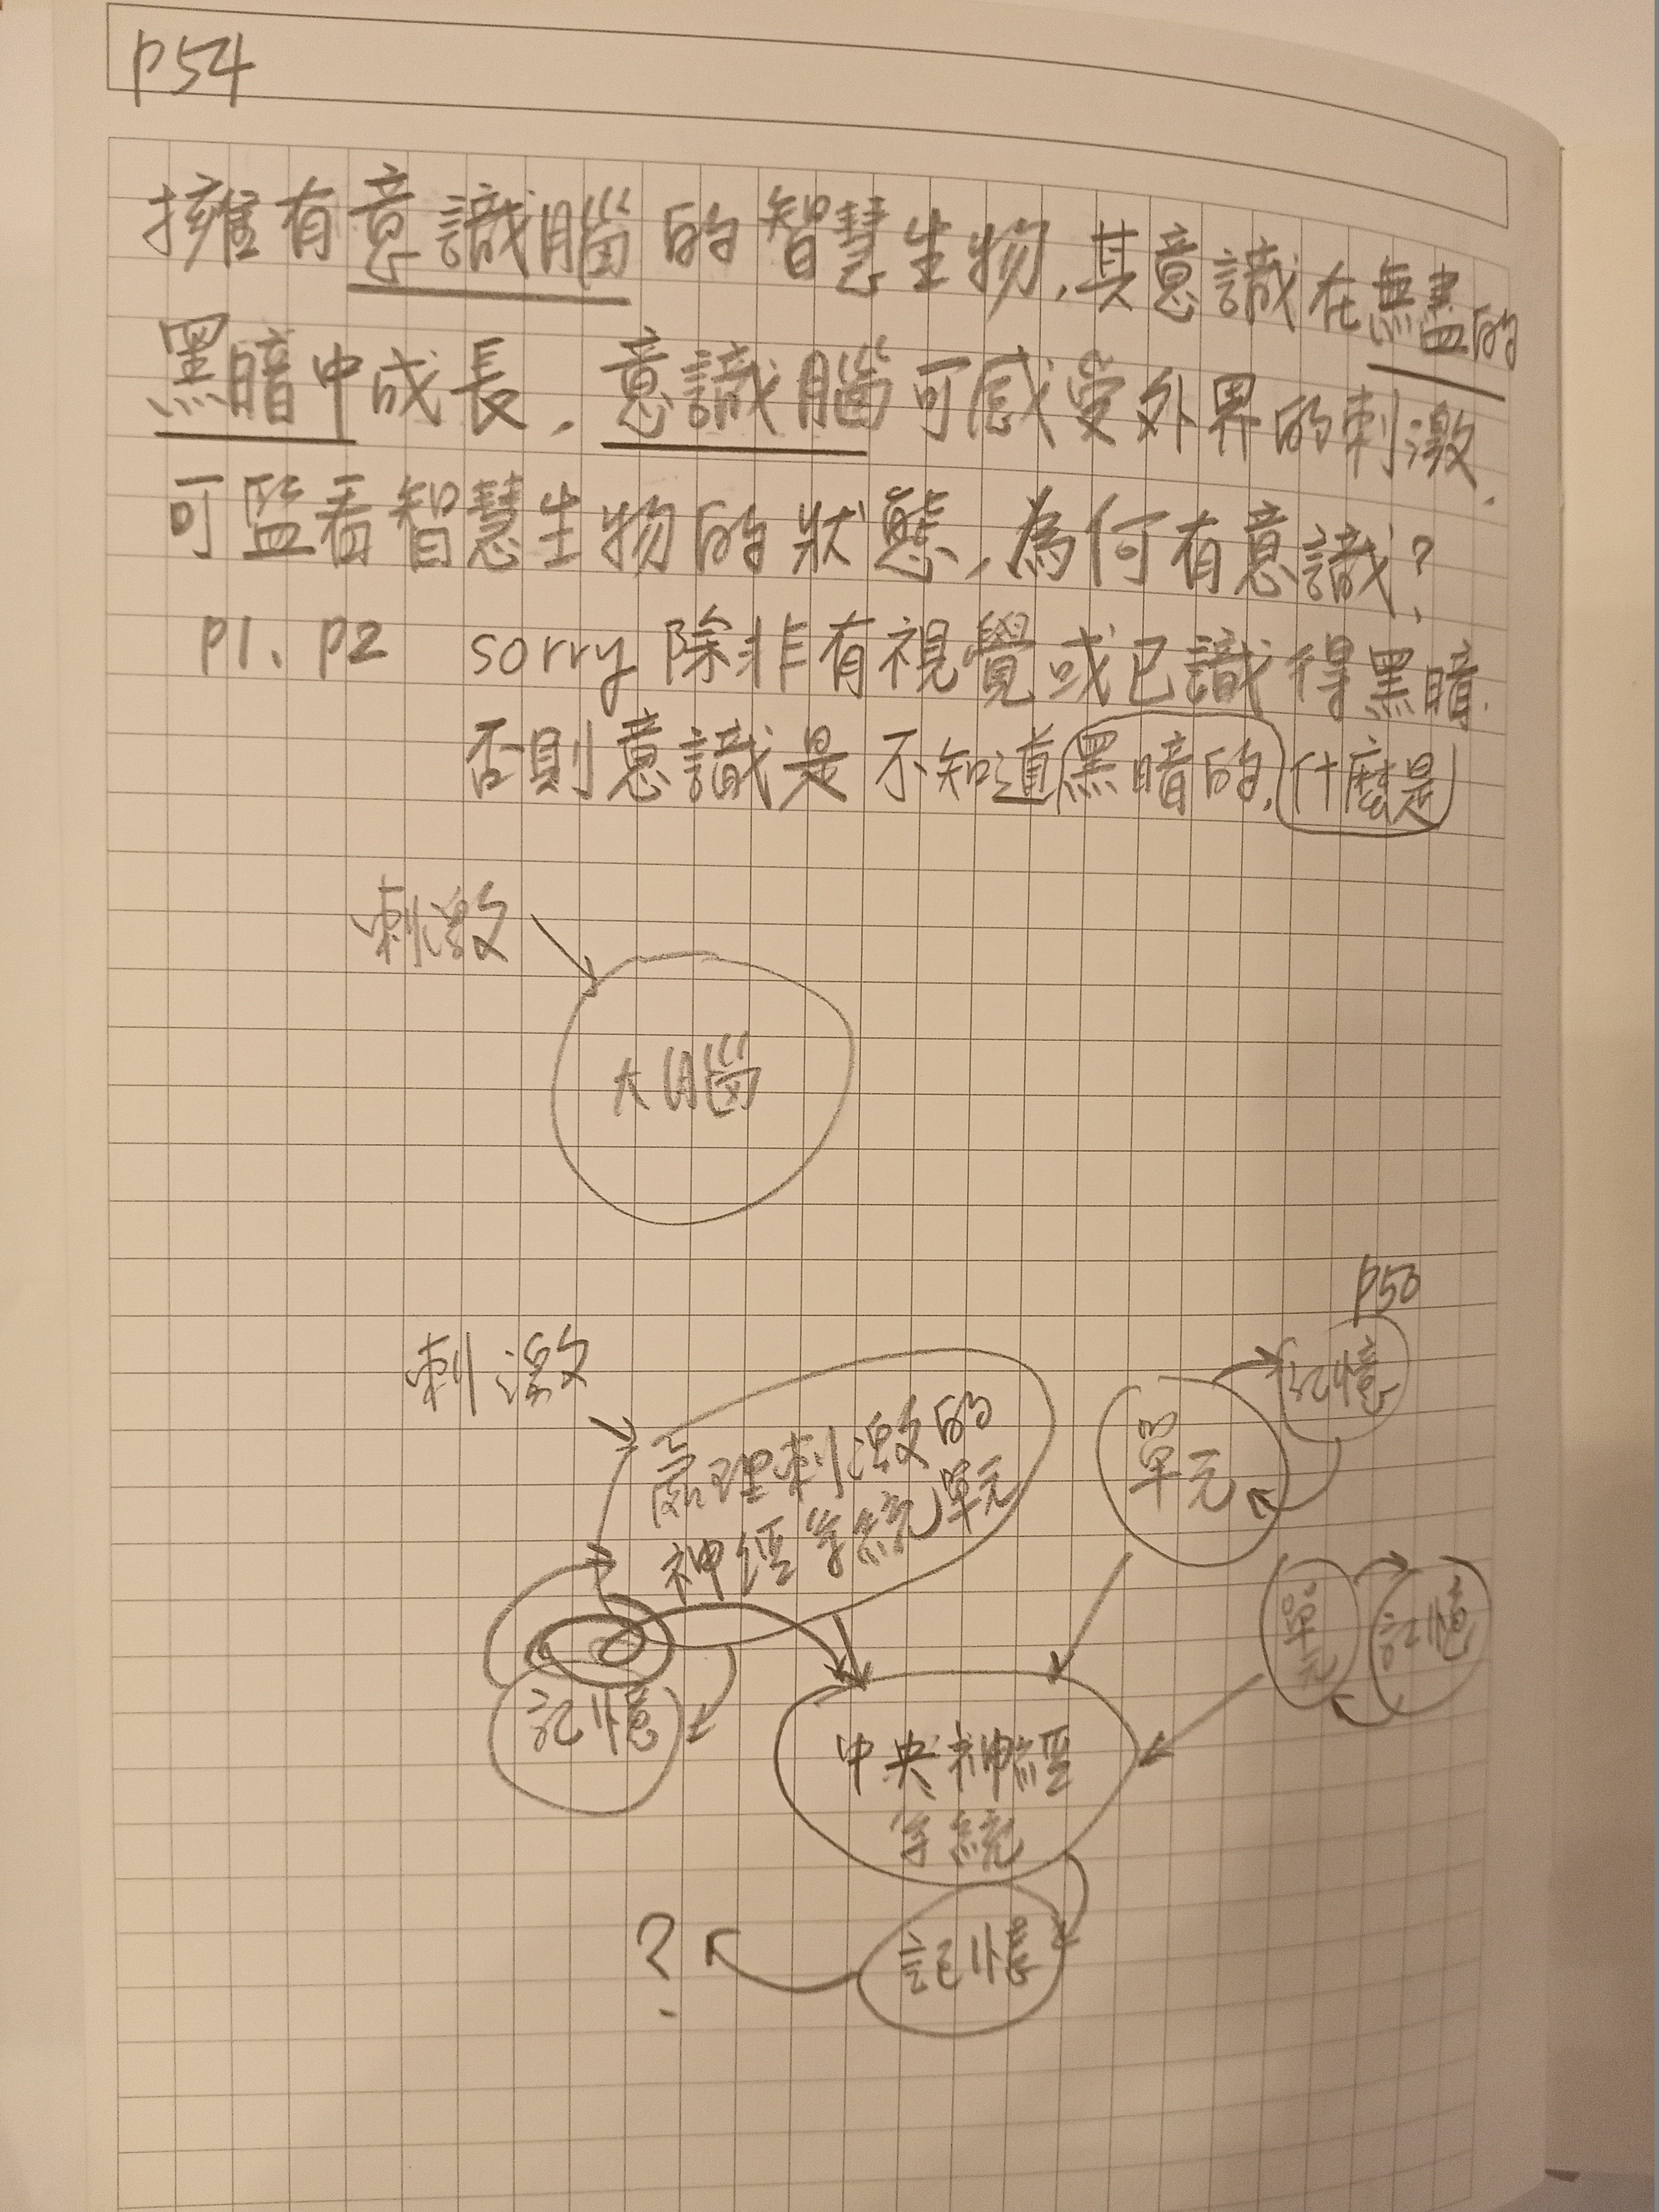 P54
擁有意識腦的智慧生物,其意識在無盡的
黑暗中成長,意識腦可感受外界的刺激,
可監看智慧生物的狀態,為何有意識?
P1、P2 sorry 除非有視覺或已識得黑暗.
否則意識是不知道黑暗的,什麼是
刺激
大腦
P50
刺激
記憶
處理刺激的
神經系統單元
單元
單元
記憶
記憶
中央神經
系統
記憶
?